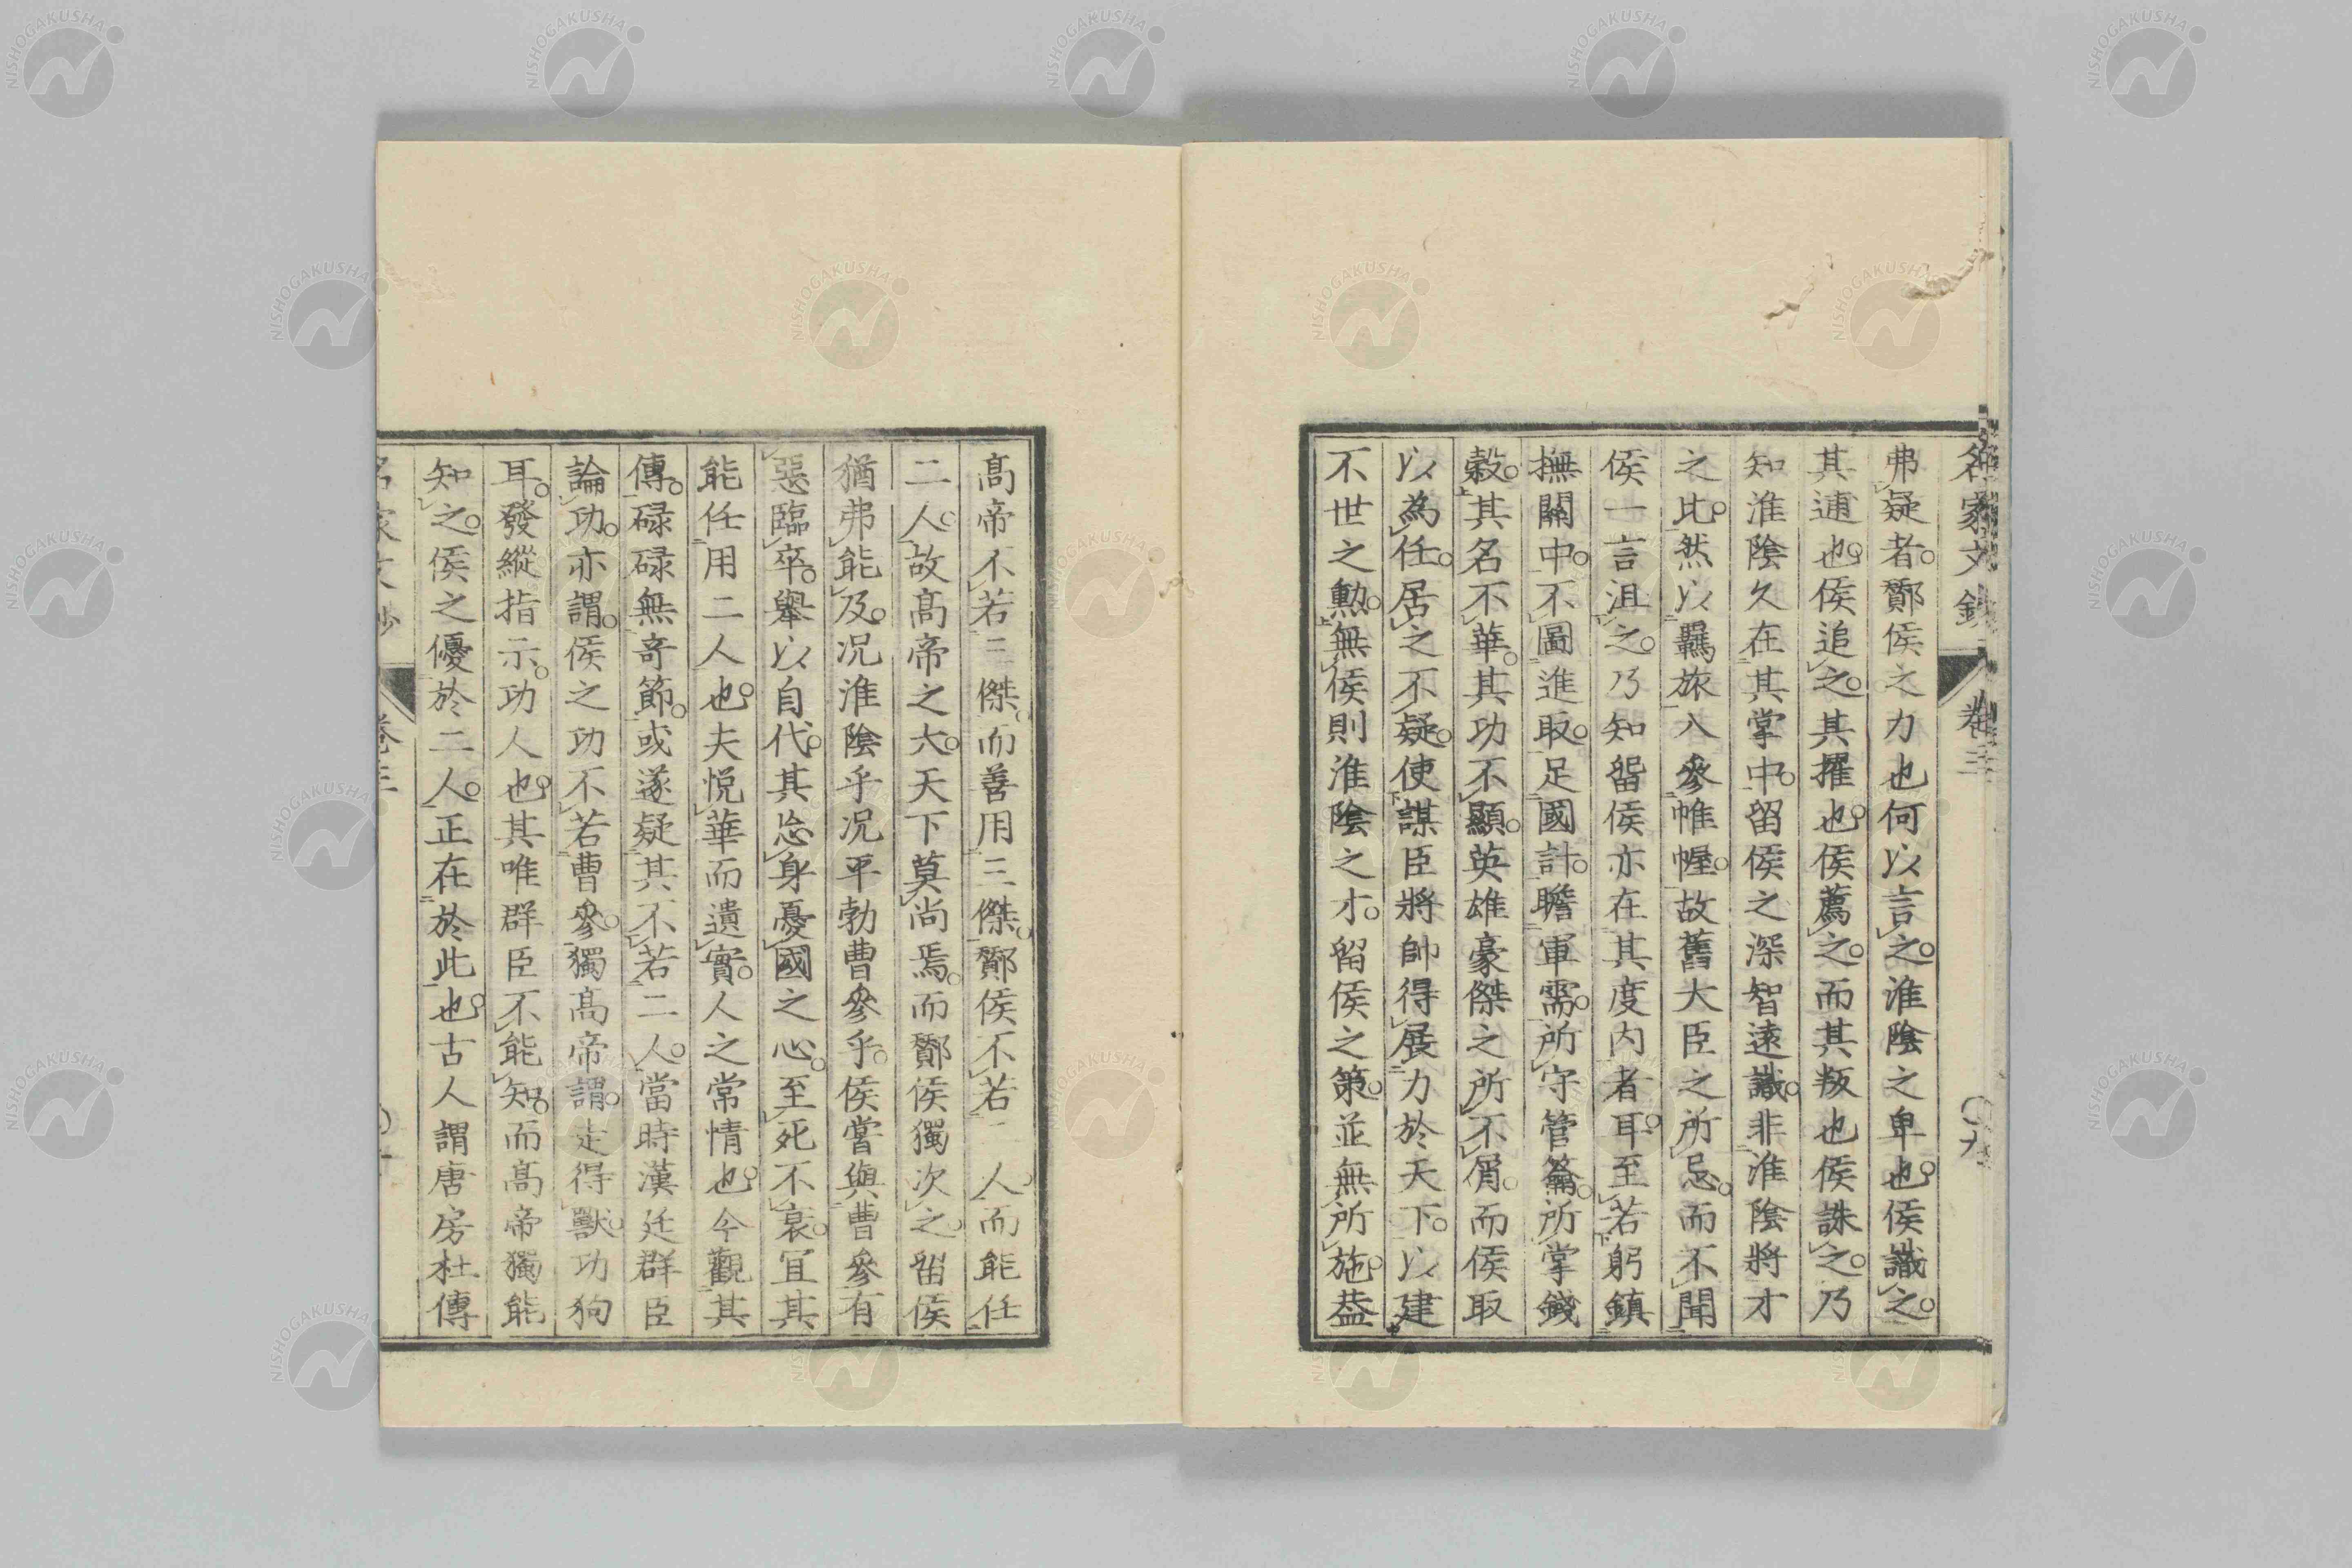 名家文鈔 卷三 〇九
弗疑者。鄼侯之力也何以言之。淮陰之卑也。侯識之。
其逋也。侯追之。其擢也。侯薦之。而其叛也侯誅之。乃
知淮陰久在其掌中。留侯之深智遠識。非淮陰將才
之比。然以羈旅入參帷幄。故舊大臣之所忌。而不聞
侯一言沮之。乃知留侯亦在其度內者耳。至若躬鎮
撫關中。不圖進取。足國計。瞻軍需。所守管籥。所掌錢
穀。其名不華。其功不顯。英雄豪傑之所不屑。而侯取
以為任。居之不疑。使謀臣將帥得展力於天下。以建
不世之勳。無侯則淮陰之才。留侯之策。並無所施。葢
高帝不若三傑。而善用三傑。鄼侯不若二人。而能任
二人。故高帝之大。天下莫尚焉。而鄼侯獨次之。留侯
猶弗能及。況淮陰乎況平勃曹參乎。侯嘗與曹參有
惡臨卒。舉以自代。其忘身憂國之心。至死不衰。宜其
能任用二人也。夫悅華而遺實。人之常情也。今觀其
傳。碌碌無奇節。或遂疑其不若二人。當時漢廷群臣
論功。亦謂。侯之功不若曹參。獨高帝謂。走得獸。功狗
耳。發縱指示。功人也。其唯群臣不能知。而高帝獨能
知之。侯之優於二人。正在於此也。古人謂唐房杜傳
名家文鈔 卷三